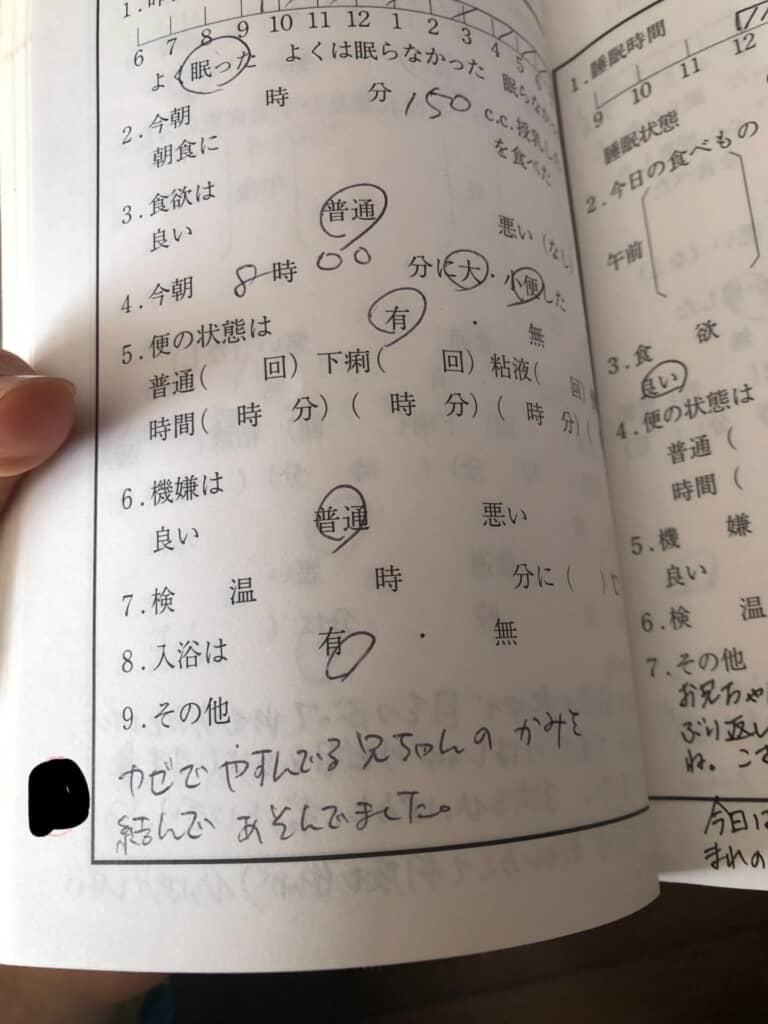 1.
6 7 8 9 10 11 12 1 2 3 4 5 6
よく眠った よくは眠らなかった 眠らなかっ
2.今朝 時 分 150 c.c.授乳した
朝食に を食べた
3.食欲は
良い 普通 悪い(なし)
4.今朝 8時 00 分に大・小便した
5.便の状態は 有 ・ 無
普通( 回) 下痢( 回) 粘液( 回)
時間( 時 分) ( 時 分) ( 時 分) (
6.機嫌は
良い 普通 悪い
7.検 温 時 分に( )
8.入浴は 有 ・ 無
9.その他
カゼで やすんでる 兄ちゃんの かみを
結んで あそんでました。
1.睡眠時間
9 10 11 12
睡眠状態
2.今日の食べもの
午前
3.食 欲
良い
4.便の状態は
普通(
時間(
5.機 嫌
良い
6.検 温
7.その他
お兄ちゃ
ぶり返し
ね。こ
今日は
まれの